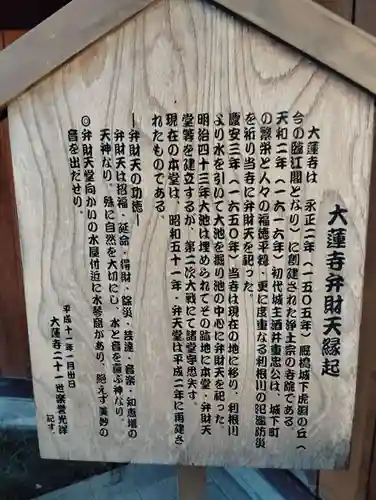 大蓮寺弁財天縁起
大蓮寺は、永正二年（一五〇五年）厩橋城下虎渕の丘（
今の臨江閣となり）に創建された浄土宗の寺院である。
天和二年（一六一六年）初代城主酒井重忠公は、城下町
の繁栄と人々の福徳平穏・更に度重なる利根川の氾濫防災
を祈り当寺に弁財天を祀った。
慶安三年（一六五〇年）当寺は現在の地に移り、利根川
より水を引いて大池を掘り池の中心に弁財天を祀った。
明治四十三年大池は埋められてその跡地に本堂・弁財天
堂等を建立するが、第二次大戦にて諸堂宇焼失す。
現在の本堂は、昭和五十一年・弁天堂は平成二年に再建さ
れたものである。
―弁財天の功徳―
弁財天は招福・延命・得財・除災・芸達・音楽・知恵増の
天神なり。殊に自然を大切にし、水と音を喜ぶ神なり。
◎弁財天堂向かいの水屋付近に水琴窟があり、絶えず美妙の
音を出だせり。
平成十一年一月廿日
大蓮寺二十一世楽誉光洋
記す。